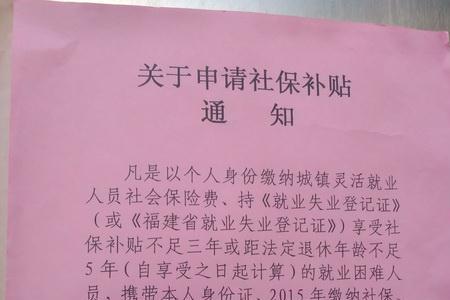 关于申请社保补贴
通 知
凡是以个人身份缴纳城镇灵活就业
人员社会保险费、持《就业失业登记证》
（或《福建省就业失业登记证》）享受社
保补贴不足三年或距法定退休年龄不足
5年（自享受之日起计算）的就业困难人
员，携带本人身份证、2015年缴纳社保